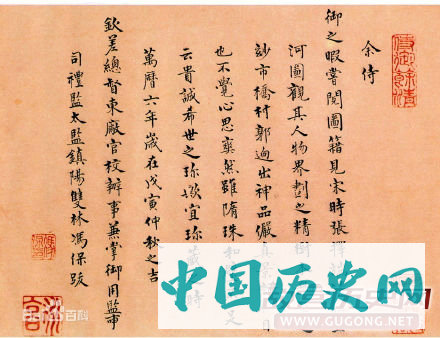 余侍
御之暇嘗閱圖籍見宋時張擇
河圖觀其人物界劃之精樹
妙市橋村郭迥出神品儼真
也不覺心思爽然雖隋珠和足
云貴誠希世之珍歟宜珍藏之時
萬曆六年歲在戊寅仲秋之吉
欽差總督東廠官校辦事兼掌御用監事
司禮監太監鎮陽雙林馮保跋
中国历史网
WWW.GUGONG.NET
百科